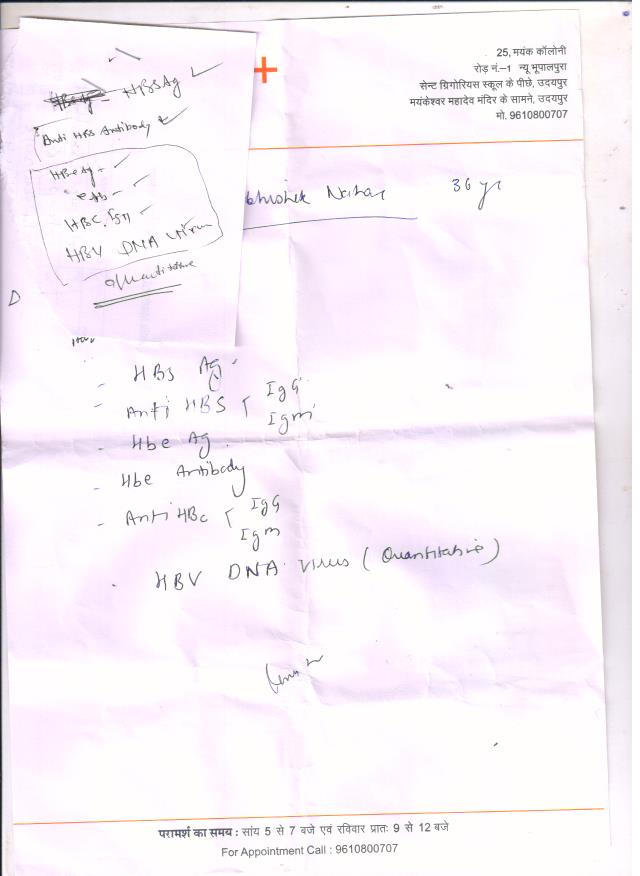 25, मयंक कॉलोनी
रोड़ नं.–1 न्यू भूपालपुरा
सेन्ट ग्रिगोरियस स्कूल के पीछे, उदयपुर
मयंकेश्वर महादेव मंदिर के सामने, उदयपुर
मो. 9610800707
HBSAg ✓
Anti HBS Antibody ✓
HBeAg - ✓
eAb - ✓
HBC. IgM ✓
HBV DNA Virus
Quantitative
bhishek Nahar 36 yr
D
- HBS Ag
- Anti HBS IgG
IgM
- Hbe Ag
- Hbe Antibody
- Anti HBc IgG
IgM
. HBV DNA Virus (Quantitative)
परामर्श का समय : सांय 5 से 7 बजे एवं रविवार प्रातः 9 से 12 बजे
For Appointment Call : 9610800707